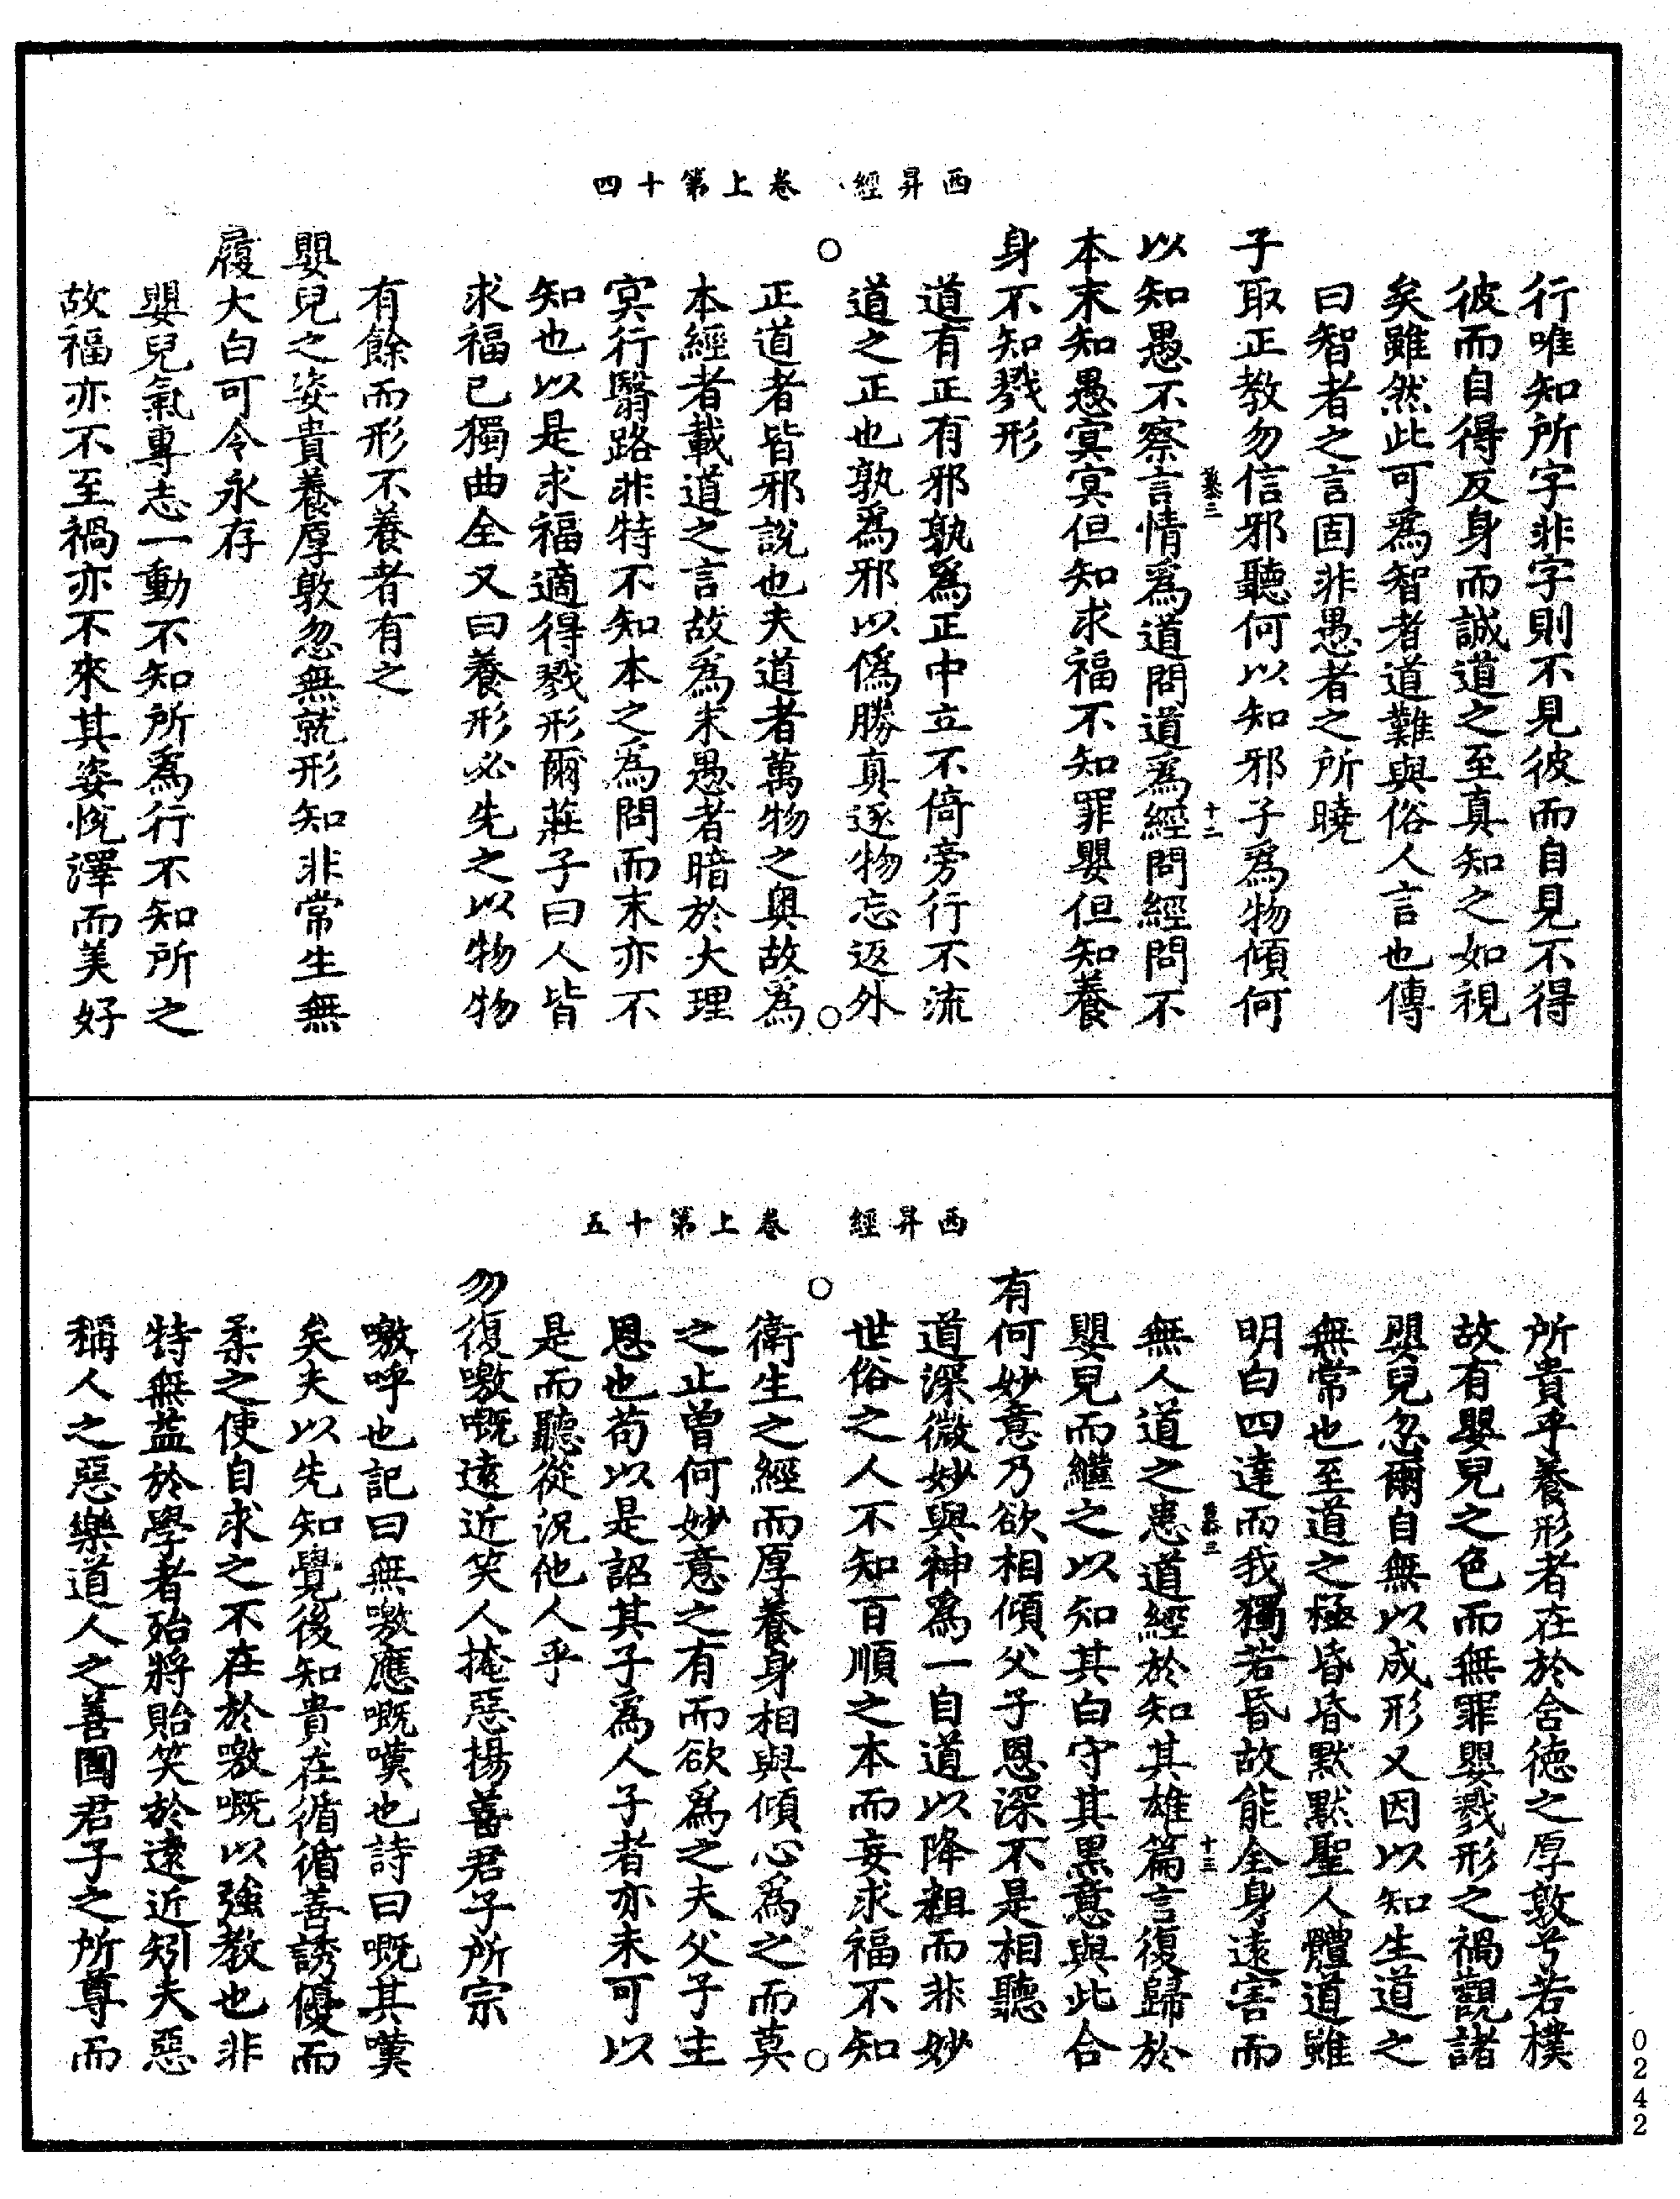 西昇經　卷上第十四
行唯知所字非字則不見彼而自見不得
彼而自得反身而誠道之至真知之如視
矣雖然此可爲智者道難與俗人言也傳
曰智者之言固非愚者之所曉
子取正教勿信邪聽何以知邪子爲物傾何
慕三　十二
以知愚不察言情爲道問道爲經問經問不
本末知愚冥冥但知求福不知罪嬰但知養
身不知戮形
道有正有邪孰爲正中立不倚旁行不流
道之正也孰爲邪以僞勝真逐物忘返外
正道者皆邪說也夫道者萬物之奧故爲
本經者載道之言故爲末愚者暗於大理
冥行翳路非特不知本之爲問而末亦不
知也以是求福適得戮形爾莊子曰人皆
求福已獨曲全又曰養形必先之以物物
有餘而形不養者有之
嬰兒之姿貴養厚敦忽無就形知非常生無
履大白可令永存
嬰兒氣專志一動不知所爲行不知所之
故福亦不至禍亦不來其姿恱澤而美好
西昇經　卷上第十五
所貴乎養形者在於含德之厚敦兮若樸
故有嬰兒之色而無罪嬰戮形之禍觀諸
嬰兒忽爾自無以成形又因以知生道之
無常也至道之極昏昏默默聖人體道雖
明白四達而我獨若昏故能全身遠害而
慕三　十三
無人道之患道經於知其雄篇言復歸於
嬰兒而繼之以知其白守其黒意與此合
有何妙意乃欲相傾父子恩深不是相聽
道深微妙與神爲一自道以降粗而非妙
世俗之人不知百順之本而妄求福不知
衛生之經而厚養身相與傾心爲之而莫
之止曾何妙意之有而欲爲之夫父子主
恩也苟以是詔其子爲人子者亦未可以
是而聽從況他人乎
勿復噭嘅遠近笑人掩惡揚善君子所宗
噭呼也記曰無噭應嘅嘆也詩曰嘅其嘆
矣夫以先知覺後知貴在循循善誘優而
柔之使自求之不在於噭嘅以強教也非
特無益於學者殆將貽笑於遠近矧夫惡
稱人之惡樂道人之善固君子之所尊而
0242